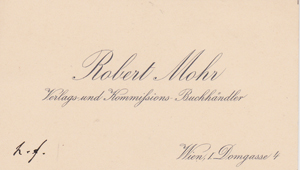 Robert Mohr
Verlags- und Kommissions-Buchhändler
Wien, I. Domgasse 4